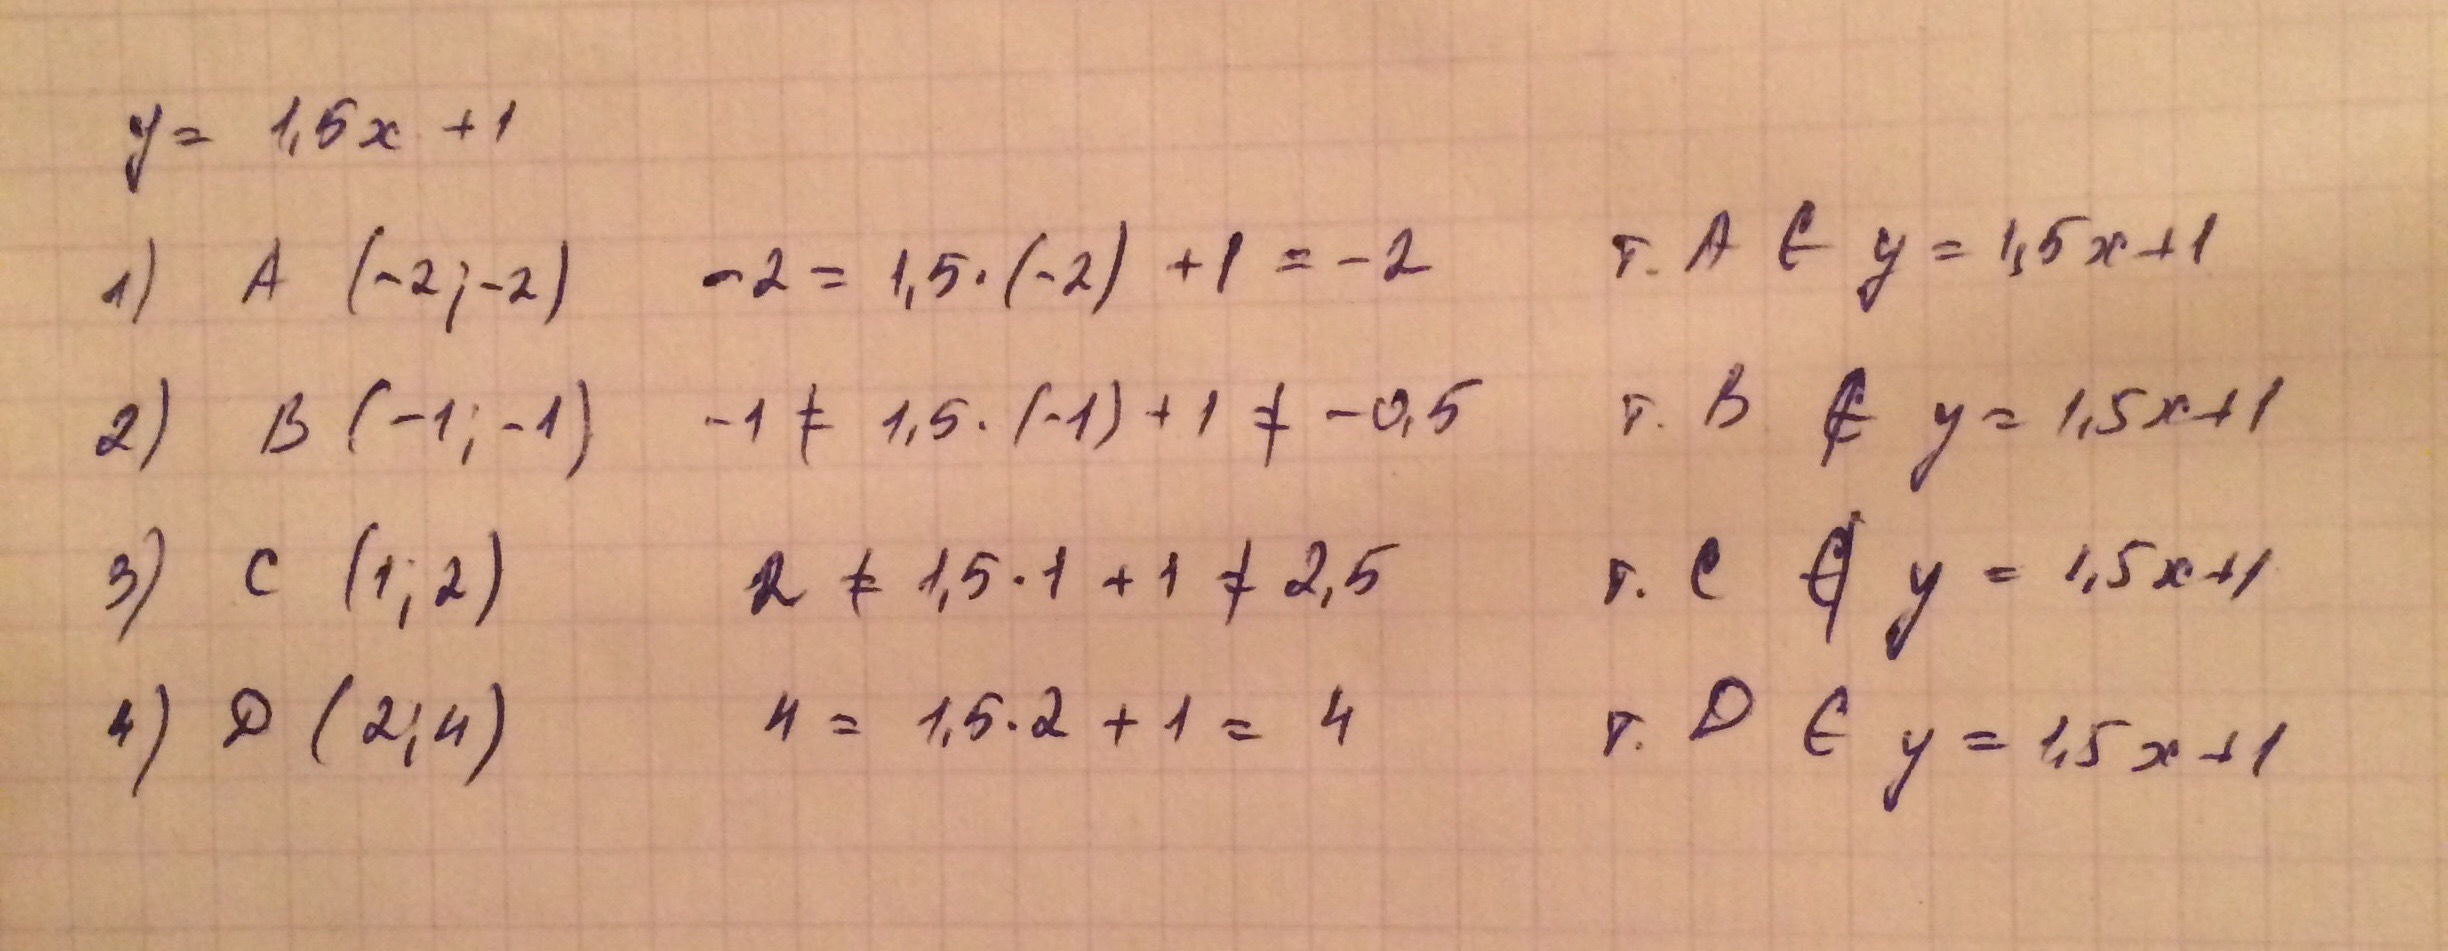 y = 1,5x + 1
1) A (-2; -2) -2 = 1,5·(-2) + 1 = -2 т. A ∈ y = 1,5x+1
2) B (-1; -1) -1 ≠ 1,5·(-1) + 1 ≠ -0,5 т. B ∉ y = 1,5x+1
3) C (1; 2) 2 ≠ 1,5·1 + 1 ≠ 2,5 т. C ∉ y = 1,5x+1
4) D (2; 4) 4 = 1,5·2 + 1 = 4 т. D ∈ y = 1,5x+1